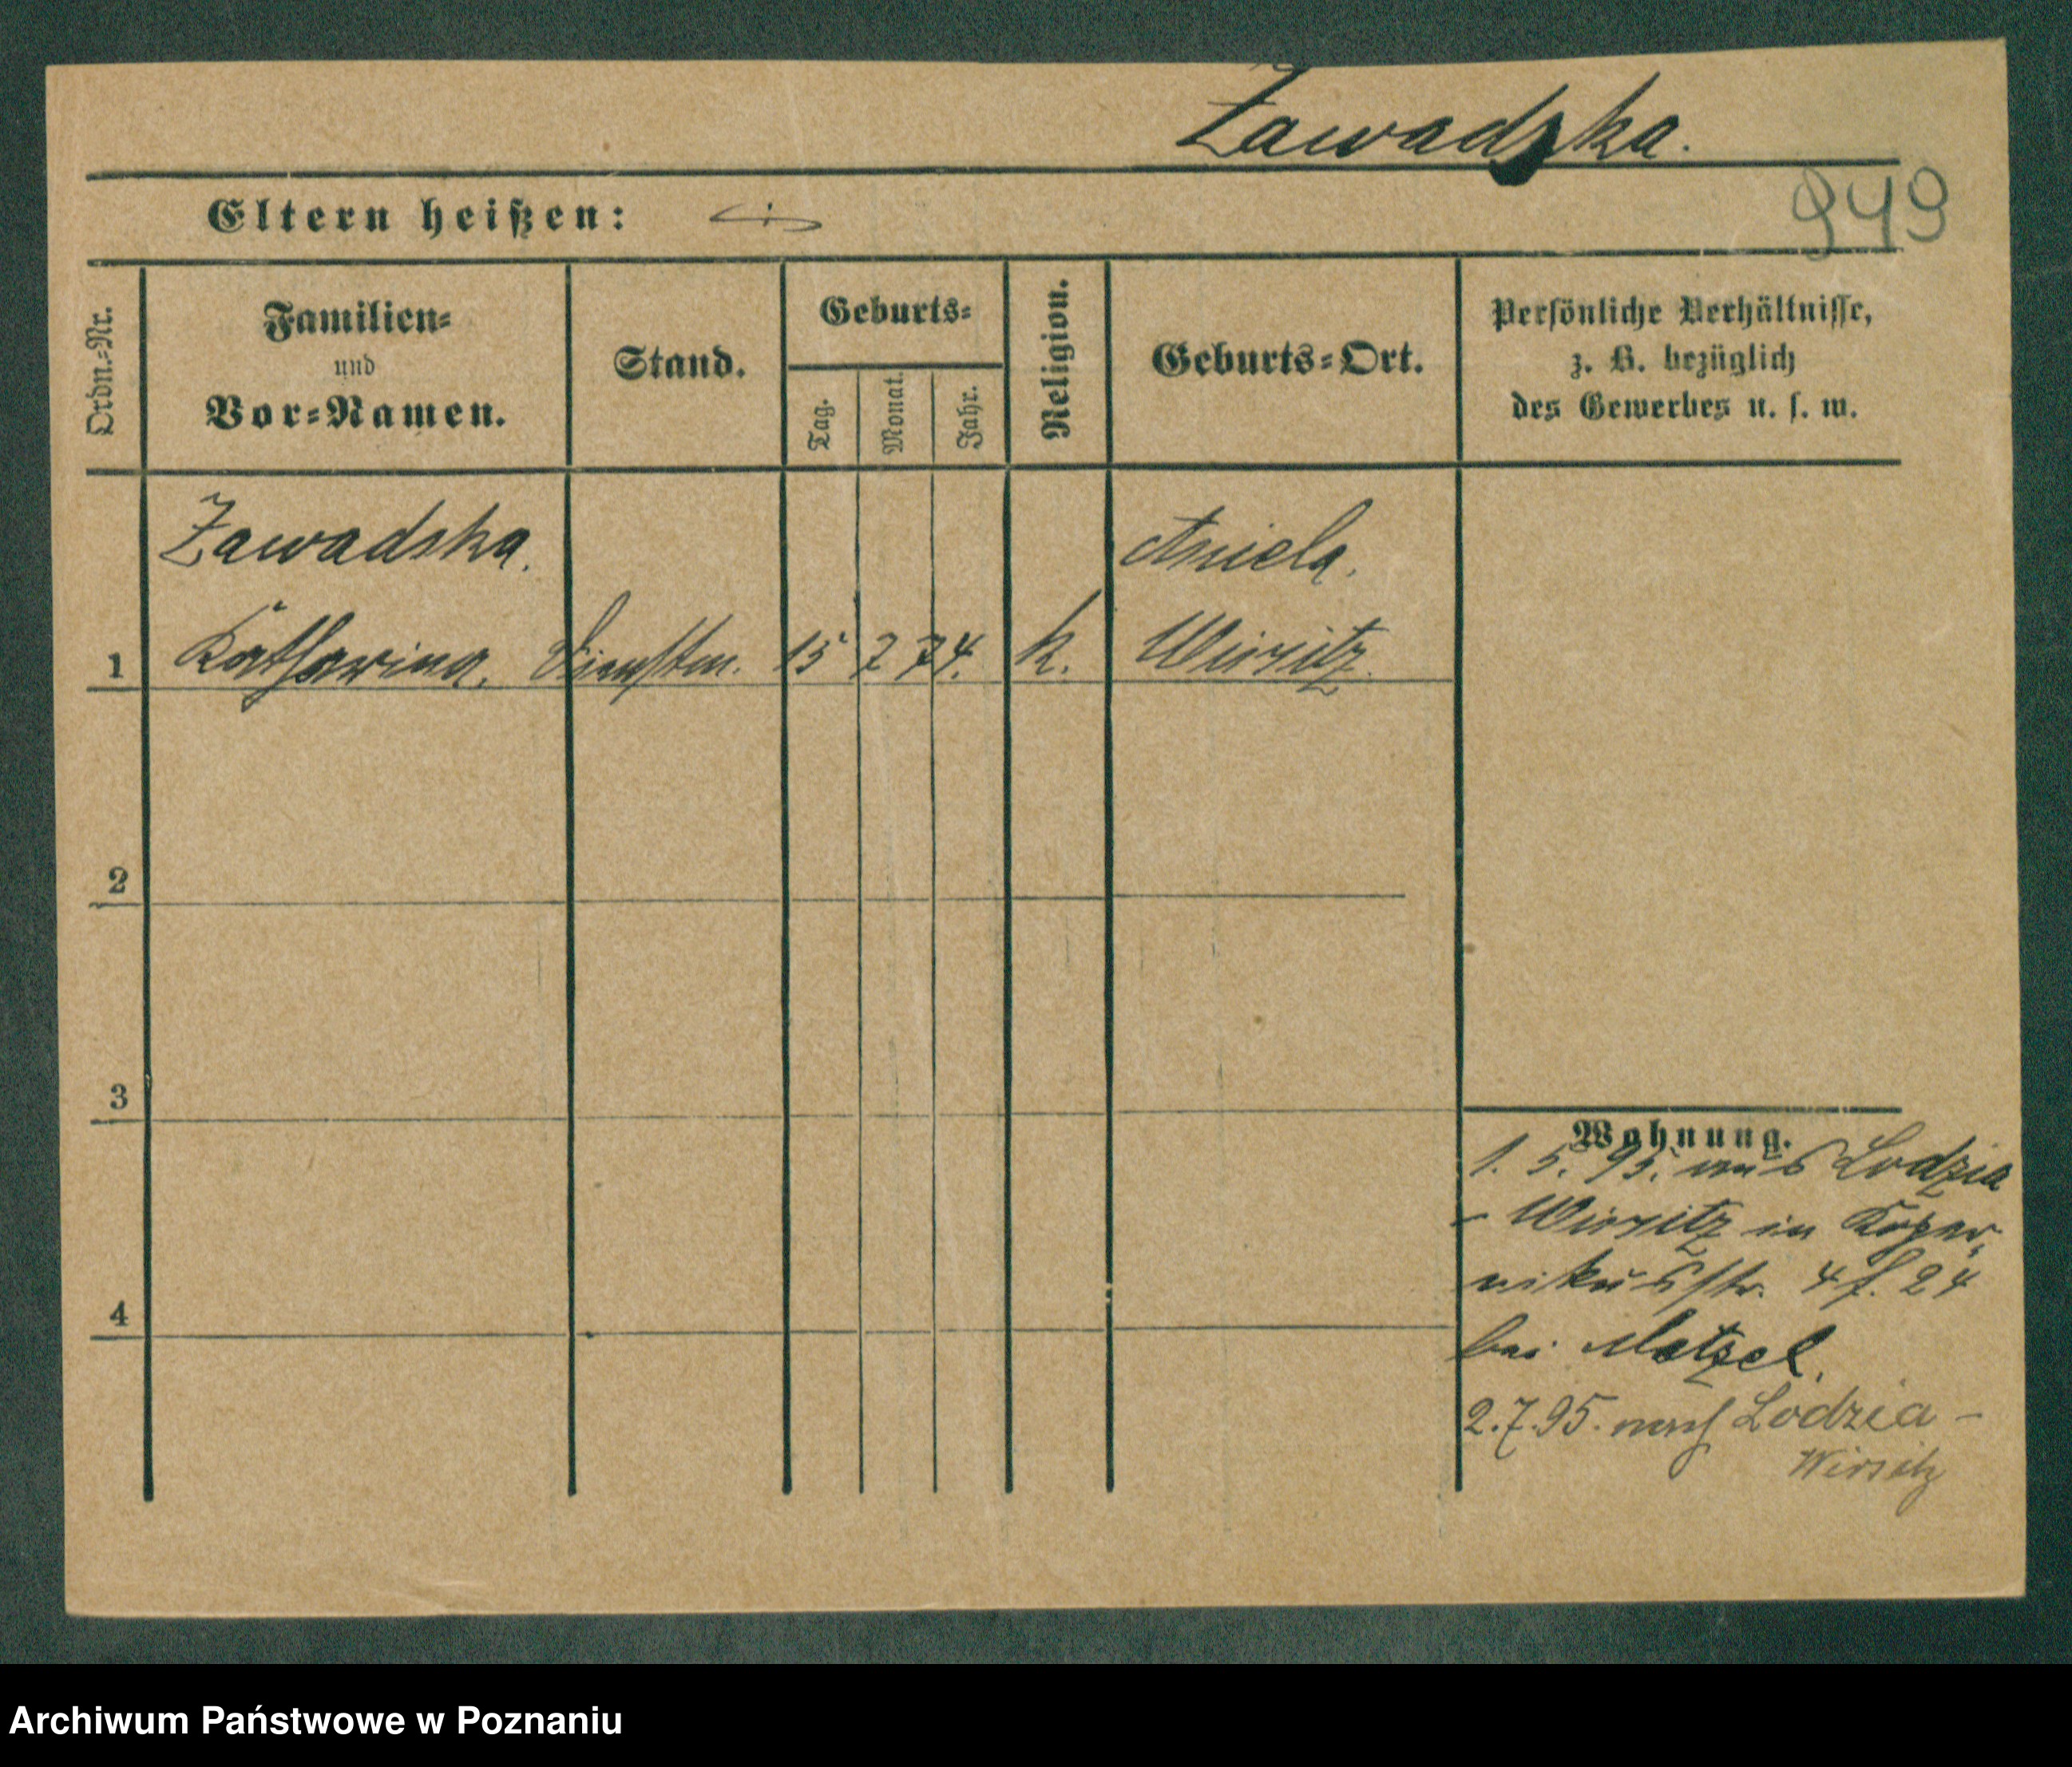 Zawadzka.
949
Eltern heißen:
Ordn.=Nr.
Familien=
und
Vor=Namen.
Stand.
Geburts=
Tag.
Monat.
Jahr.
Religion.
Geburts=Ort.
Persönliche Verhältnisse,
z. B. bezüglich
des Gewerbes u. s. w.
Zawadska. Aniela.
1 Katharina. Dienstm. 15 2 74. k. Wirsitz.
2
3
4
Wohnung.
1. 5. 95. aus Lodzia
- Wirsitz in Koper,
nikusstr. 4 f. 24
bei Metzel.
2.7.95. nach Lodzia -
Wirsitz
Archiwum Państwowe w Poznaniu